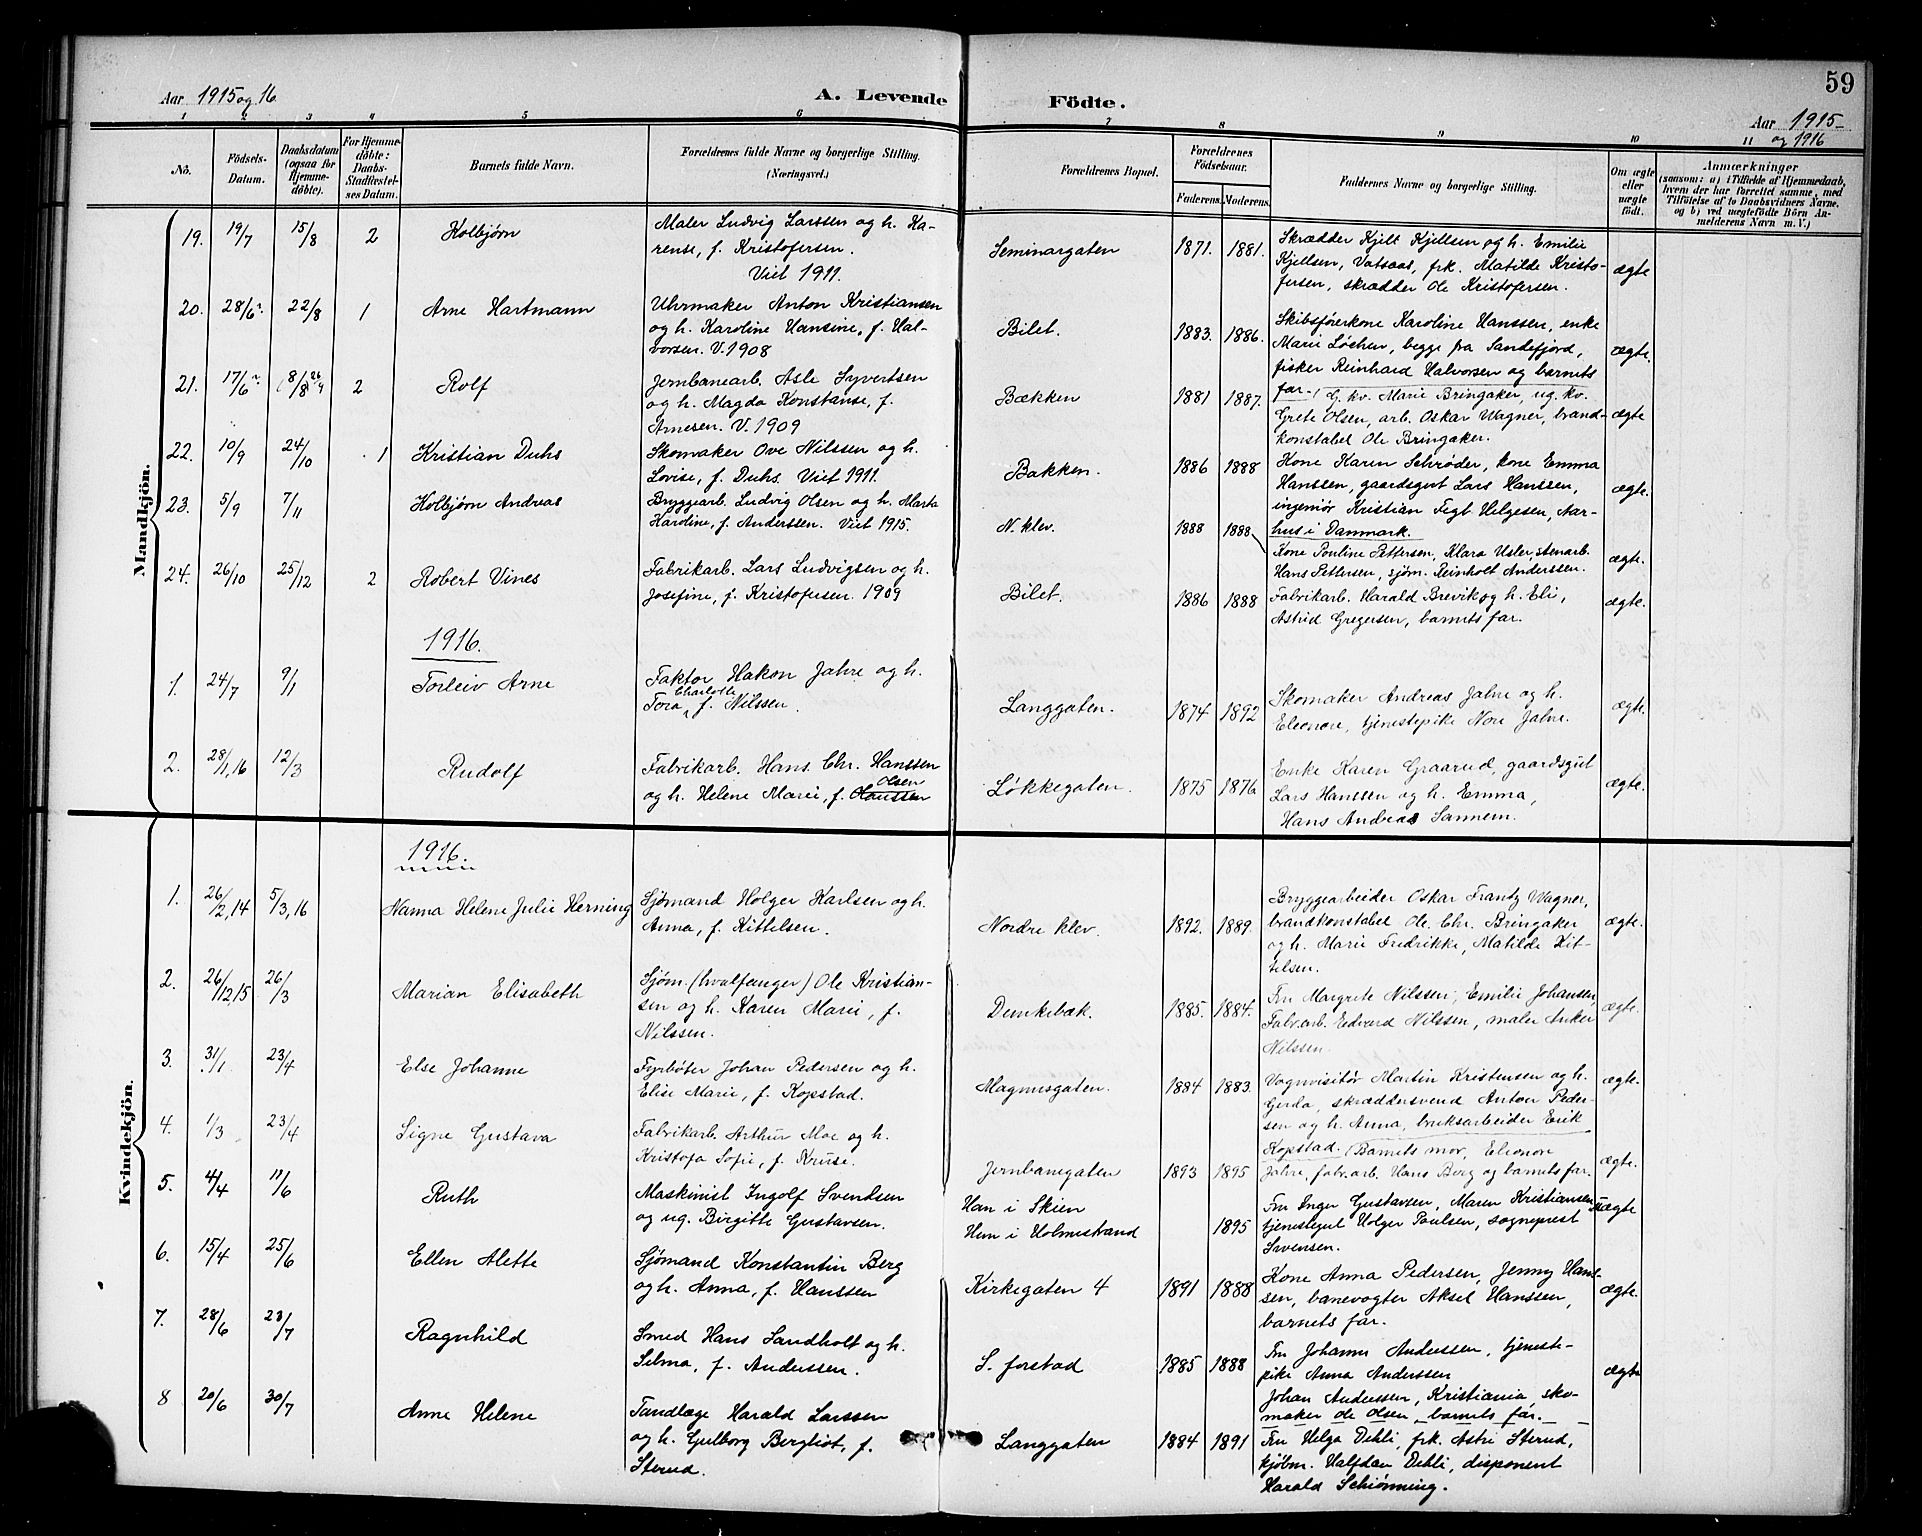 59
Aar 1915 og 16
A. Levende Födte.
Aar 1915-
og 1916
1 2 3 4 5 6 7 8 9 10 11
No.
Födsels-Datum.
Daabsdatum (ogsaa for Hjemme-döbte).
For Hjemme-döbte: Daabs-Stadfæstel-ses Datum.
Barnets fulde Navn.
Forældrenes fulde Navne og borgerlige Stilling.
(Næringsvei.)
Forældrenes Bopæl.
Forældrenes Födselsaar.
Faderens. Moderens.
Faddernes Navne og borgerlige Stilling.
Om ægte eller uægte födt.
Anmærkninger
(saasom: a) i Tilfælde af Hjemmedaab,
hvem der har forrettet samme, med
Tilföielse af to Daabsvidners Navne.
og b) ved uægtefödte Börn An-
melderens Navn m. V.)
Mandkjön.
19. 19/7 15/8 2 Kolbjørn
Maler Ludvig Larssen og h. Ka-
rense, f. Kristofersen.
Viet 1911.
Seminargaten 1871. 1881.
Skrædder Kjilt Kjellsen og h. Emilie
Kjellsen, Vatsaas, frk. Matilde Kristo-
fersen, skrædder Ole Kristofersen.
ægte
20. 28/6 22/8 1 Arne Hartmann
Uhrmaker Anton Kristiansen
og h. Karoline Hansine, f. Hal-
vorsen. V. 1908
Bilet. 1883. 1886.
Skibsførerkone Karoline Hanssen, enke
Marie Løchen, begge fra Sandefjord,
fisker Reinhard Halvorsen og barnets
far.
ægte.
21. 17/6 8/8 2 Rolf
Jernbanearb. Asle Syvertsen
og h. Magda Konstanse, f.
Arnesen. V. 1909
Bækken 1881 1887.
G. kv. Marie Bringaker, ug. kv.
Grete Olsen, arb. Oskar Wagner, brand-
konstabel Ole Bringaker.
ægte
22. 10/9 24/10 1 Kristian Duhs
Skomaker Ove Nilssen og h.
Lovise, f. Duhs. Viet 1911.
Bakken. 1886 1888
Kone Karen Schrøder, kone Emma
Hanssen, gaardsgut Lars Hanssen,
ingeniør Kristian Fegt Helgesen, Aar-
hus i Danmark.
ægte.
23. 5/9 7/11 Kolbjørn Andreas
Bryggearb. Ludvig Olsen og h. Marta
Karoline, f. Anderssen. Viet 1915.
N. klev. 1888 1888
Kone Pouline Pettersen, Klara Usler, stenarb.
Hans Pettersen, sjøm. Reinholt Anderssen.
ægte.
24. 26/10 25/12 2 Robert Vines
Fabrikarb. Lars Ludvigsen og h.
Josefine, f. Kristofersen. 1909
Bilet. 1886 1888
Fabrikarb. Harald Brevik og h. Eli,
Astrid Gregersen, barnets far.
ægte.
1916.
1. 24/7 9/1 Torleiv Arne
Faktor Hakon Jahre og h.
Tora Charlotte f. Nilssen.
Langgaten. 1874 1892
Skomaker Andreas Jahre og h.
Eleonore, tjenestepike Nore Jahre.
ægte.
2. 28/1, 16 12/3 Rudolf
Fabrikarb. Hans Chr. Hanssen
og h. Helene Marie, f. Hanssen Olsen
Løkkegaten. 1875 1876
Enke Karen Graarud, gaardsgut
Lars Hanssen og h. Emma,
Hans Andreas Sannem.
ægte.
Kvindekjön.
1916.
1. 26/2, 14 5/3, 16 Nanna Helene Julie Herning
Sjømand Holger Karlsen og h.
Anna, f. Kittelsen.
Nordre klev. 1892. 1889.
Bryggearbeider Oskar Frantz Wagner,
brandkonstabel Ole Chr. Bringaker
og h. Marie Fredrikke, Matilde Kit-
telsen.
ægte.
2. 26/12, 15 26/3 Marian Elisabeth
Sjøm. (hvalfanger) Ole Kristian-
sen og h. Karen Marie, f.
Nilssen.
Dunkebæk. 1885. 1884.
Fru Margrete Nilssen, Emilie Johansen,
Fabr.arb. Edvard Nilssen, maler Anker
Nilssen.
ægte.
3. 31/1 23/4 Else Johanne
Fyrbøter Johan Pedersen og h.
Elise Marie, f. Kopstad.
Magnusgaten. 1884 1883.
Vognvisitør Martin Kristensen og h.
Gerda, skræddersvend Anton Peder-
sen og h. Anna, bruksarbeider Erik
Kopstad.
ægte.
4. 1/3 23/4 Signe Gustava
Fabrikarb. Arthur Moe og h.
Kristofa Sofie, f. Kruse.
Jernbanegaten 1893 1895
Barnets mor, Eleonor
Jahre, fabr.arb. Hans Berg og barnets far.
ægte.
5. 4/4 11/6 Ruth
Maskinist Ingolf Svendsen
og ug. Birgitte Gustavsen.
Han i Skien
Hun i Holmestrand 1895
Fru Inger Gustavsen, Maren Kristiansen,
tjenestegut Holger Poulsen, sogneprest
Svensen.
uægte
6. 15/4 25/6 Ellen Alette
Sjømand Konstantin Berg
og h. Anna, f. Hanssen
Kirkegaten 4 1891 1888
Kone Anna Pedersen, Jenny Hans-
sen, banevogter Aksel Hanssen,
barnets far.
ægte.
7. 28/6 23/7 Ragnhild
Smed Hans Sandholt og h.
Selma, f. Anderssen.
S. forstad 1885 1888
Fru Johanne Anderssen, tjeneste-
pike Anna Anderssen
Johan Anderssen, Kristiania, sko-
maker Ole Olsen, barnets far.
ægte
8 20/6 30/7 Anne Helene
Tandlæge Harald Larssen
og h. Gulborg Bergliot, f.
Sterud.
Langgaten 1884 1891
Fru Helga Dehli, frk. Astri Sterud,
kjøbm. Halfdan Dehli, disponent
Harald Schiønning.